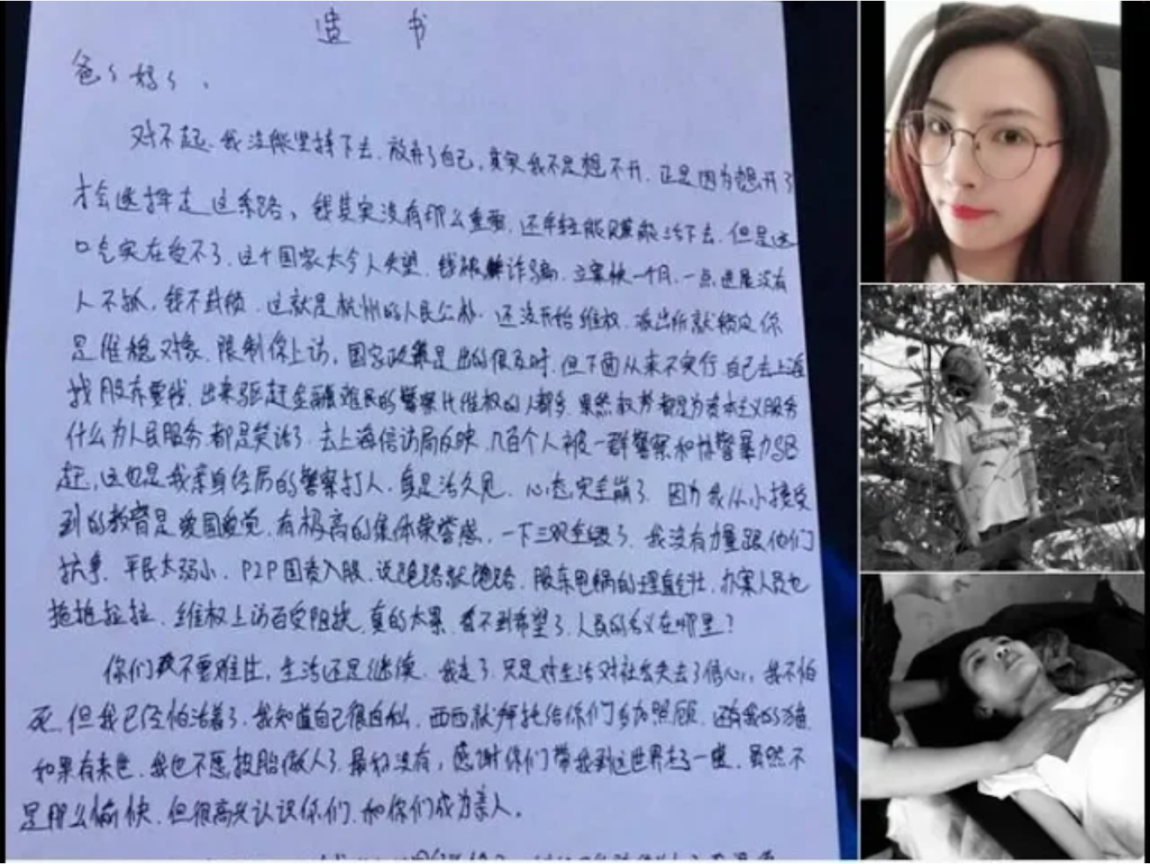 遗 书
爸々妈々，
对不起，我没能坚持下去，放弃了自己，其实我不是想不开，正是因为想开了
才会选择走这条路，钱其实没有那么重要，还年轻能赚能活下去，但是这
口气实在受不了，这个国家太令人失望，钱被诈骗，立案快一个月，一点进展没有
人不抓，钱不封锁，这就是杭州的人民公仆，还没开始维权，派出所就锁定你
是维稳对象，限制你上访，国家政策是出的很及时，但下面从来不实行，自己去上海
找股东要钱，出来驱赶金融难民的警察比维权的人都多，果然权势都是为资本主义服务
什么为人民服务都是笑话了，去上海信访局反映，几百个人被一群警察和协警暴力驱
赶，这也是我亲身经历的警察打人，真是活久见，心态完全崩了，因为我从小接受
到的教育是爱国爱党，有极高的集体荣誉感，一下三观全毁了，我没有力量跟他们
抗争，平民太弱小，P2P国资入股，说跑路就跑路，股东甩锅的理直气壮，办案人员也
拖拖拉拉，维权上访百受阻挠，真的太累，看不到希望了，人民的名义在哪里？
你们不要难过，生活还是继续，我走了，只是对生活对社会失去了信心，我不怕
死，但我已经怕活着了，我知道自己很自私，西西就拜托给你们多加照顾，还有我的猫
如果有来世，我也不愿投胎做人了，最好没有，感谢你们带我到这世界走了一遭，虽然不
是那么愉快，但很高兴认识你们，和你们成为亲人。